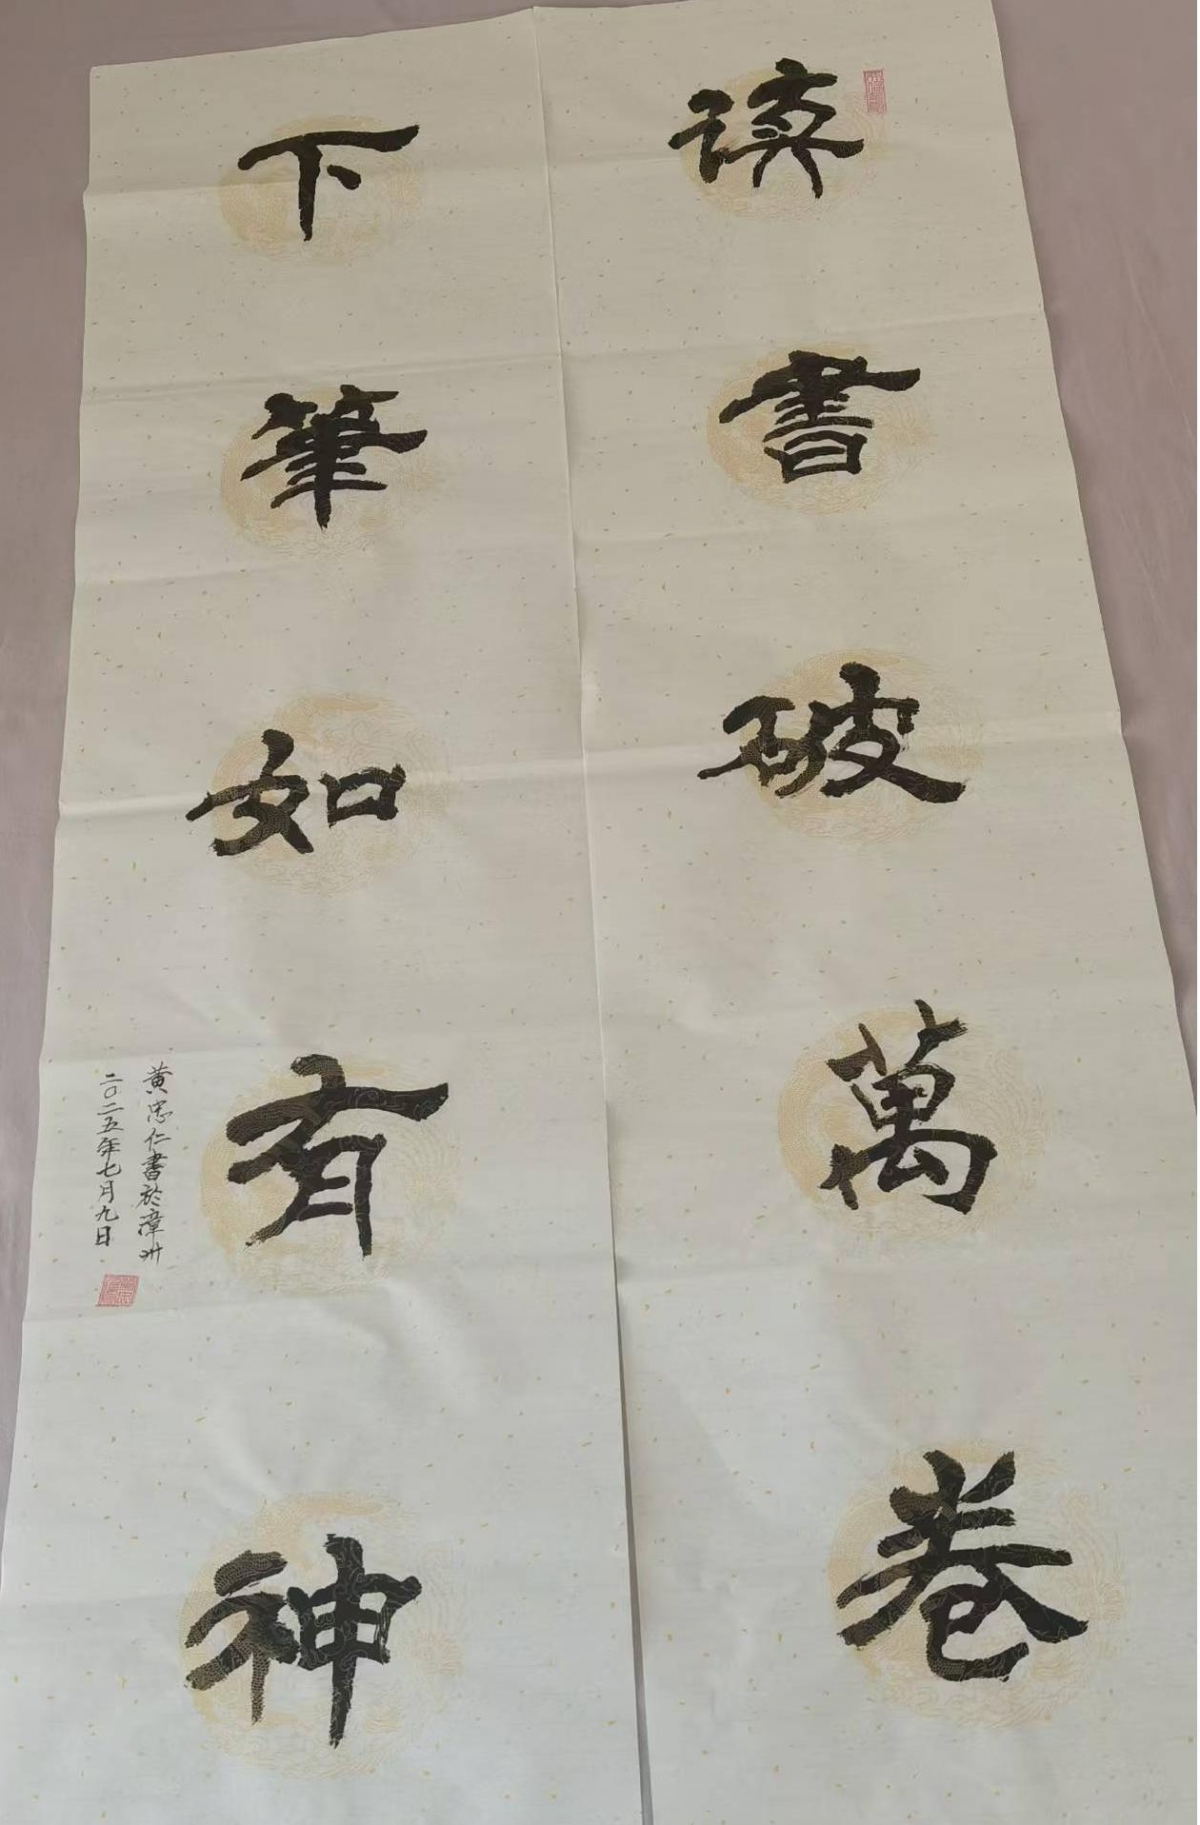 读書破萬卷
下筆如有神
黄忠仁書於漳州
二〇二五年七月九日